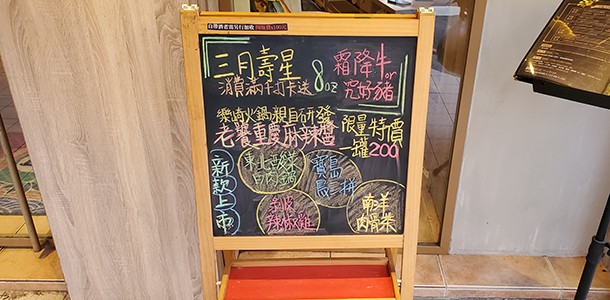 三月壽星
消費滿千打卡送
8oz
霜降牛
or
究好豬
樂崎火鍋親自研發
老饕重慶麻辣醬
限量特價
一罐200
新款上市
東北酸菜
白肉鍋
寶島
晨拼
辣椒雞
南洋
肉骨茶